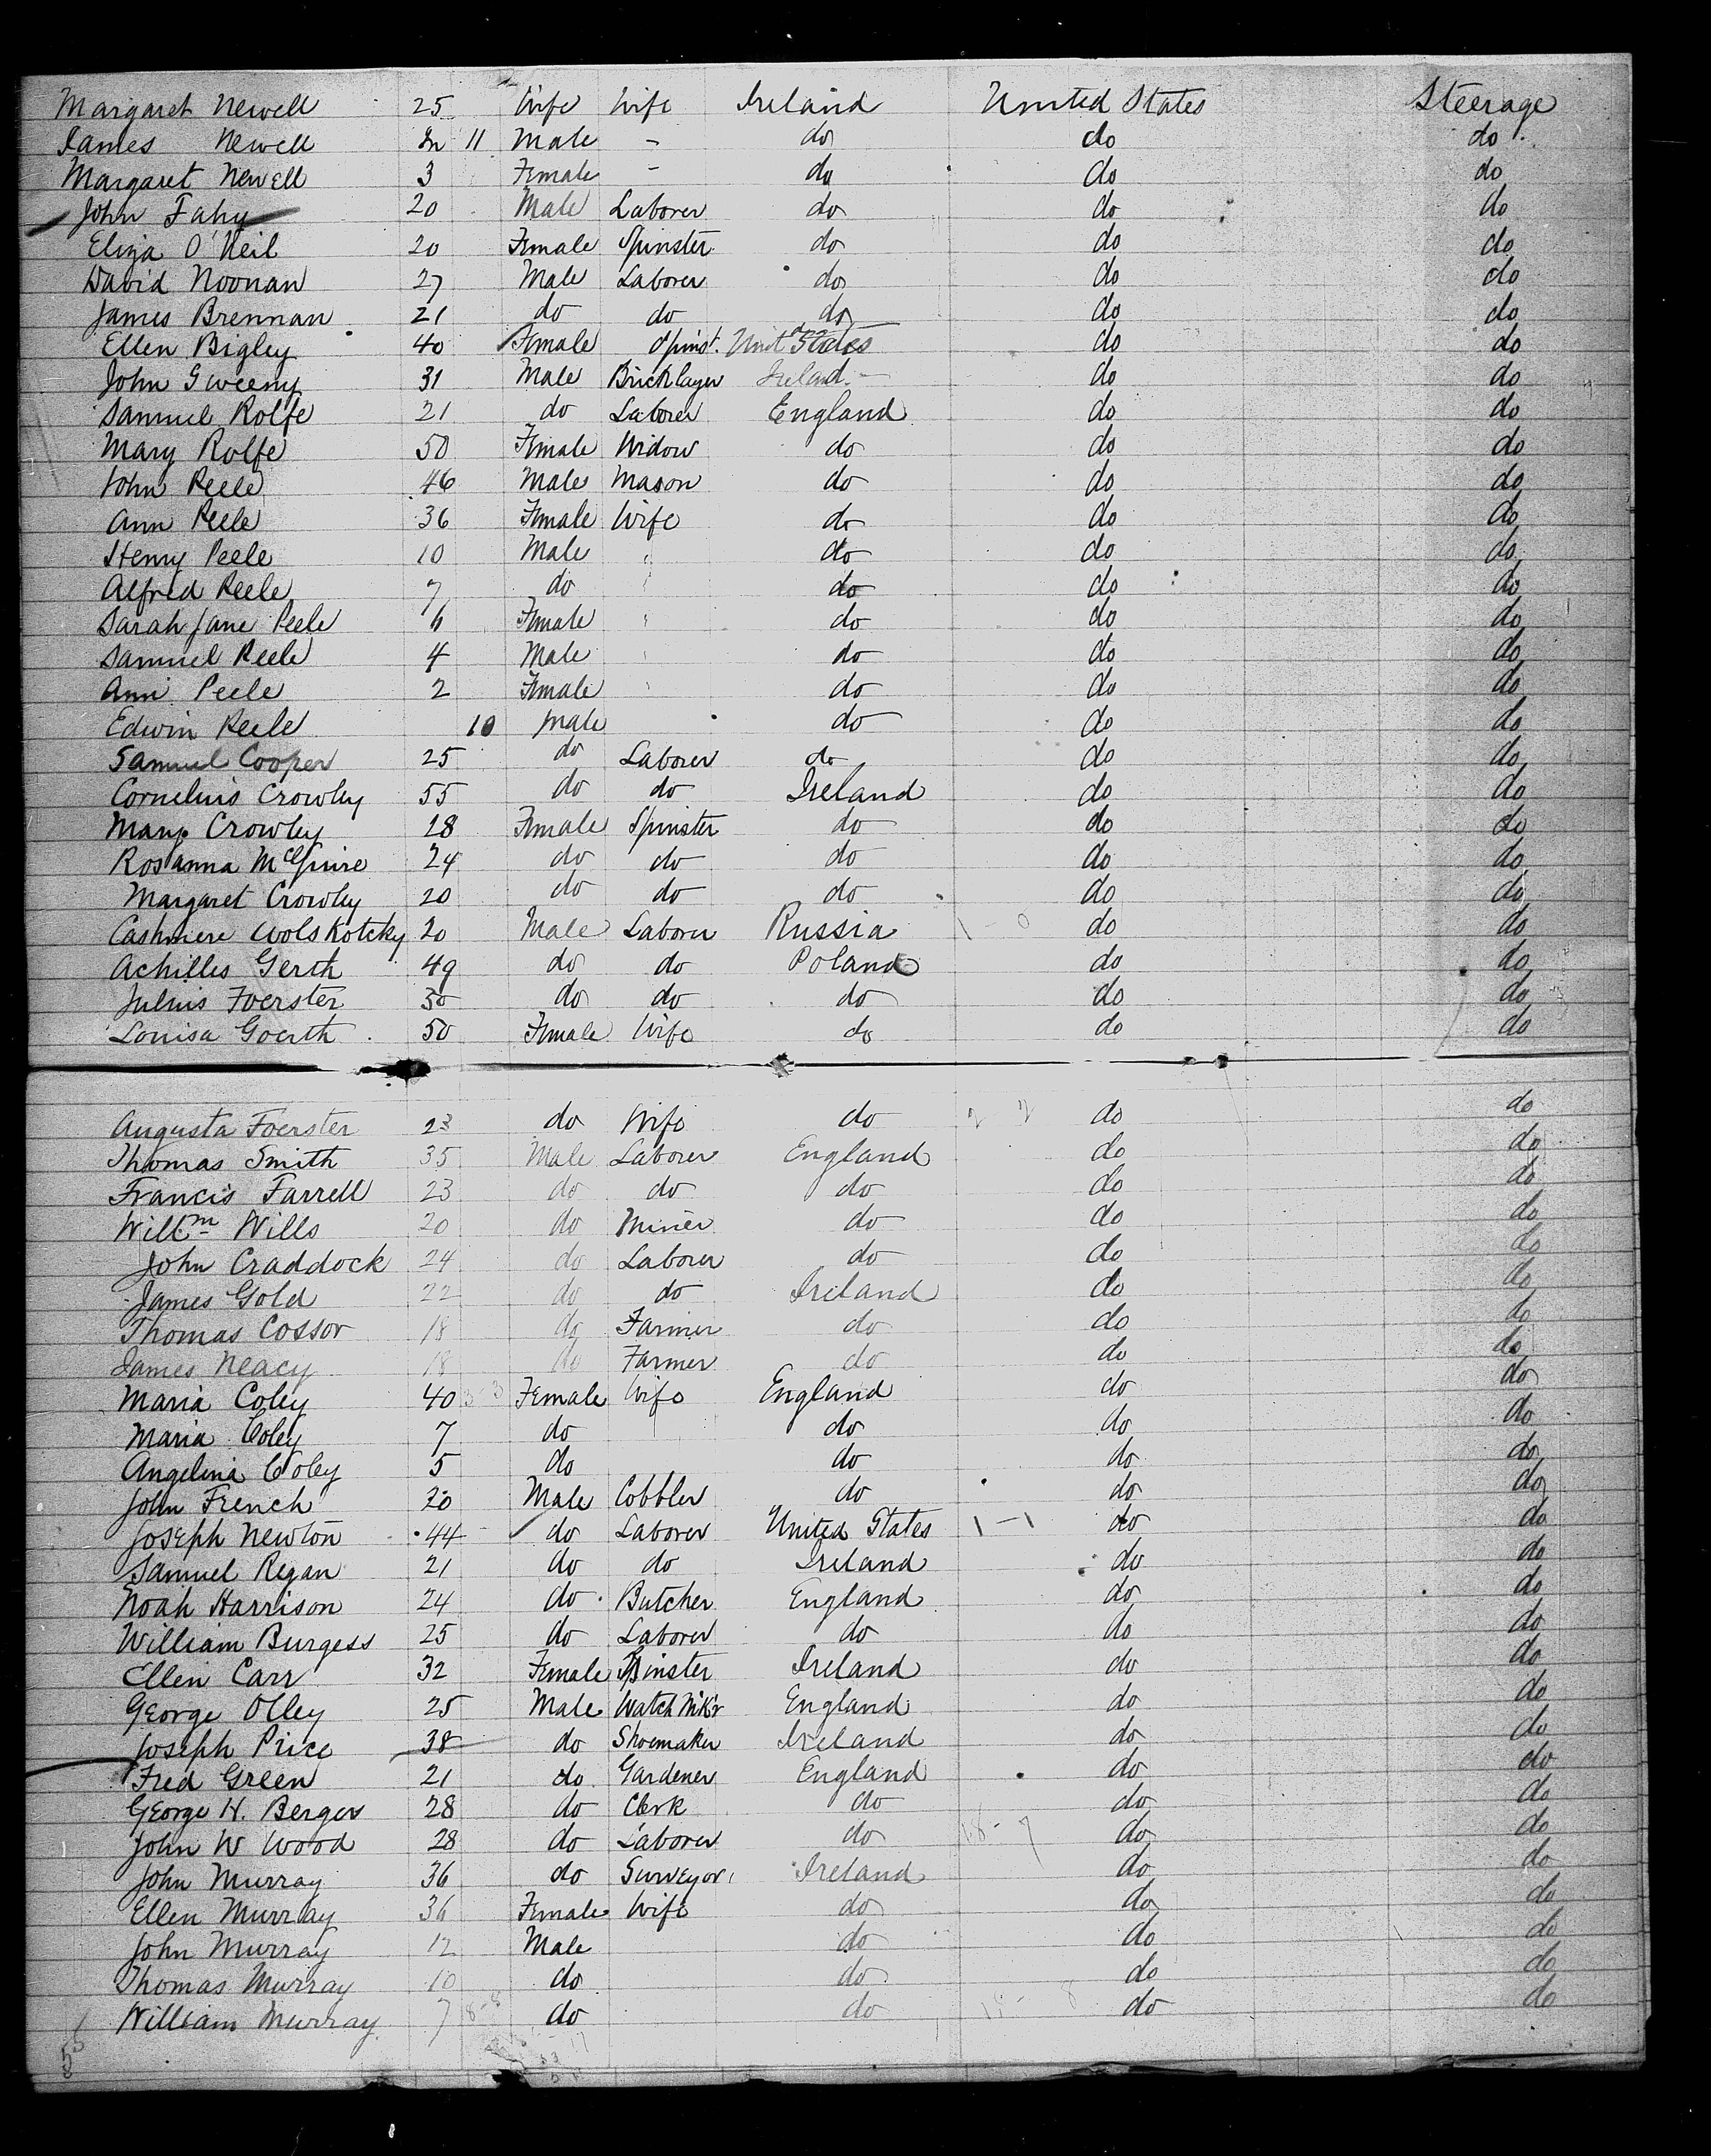 Margaret Newell 25 Wife Wife Ireland United States Steerage
James Newell 11 Male - do do do
Margaret Newell 3 Female - do do do
John Fahy 20 Male Laborer do do do
Eliza O'Neil 20 Female Spinster do do do
David Noonan 27 Male Laborer do do do
James Brennan 21 do do do do do
Ellen Bigley 40 Female Spinst. United States do do
John Sweeny 31 Male Bricklayer Ireland - do do
Samuel Rolfe 21 do Laborer England do do
Mary Rolfe 50 Female Widow do do do
John Peele 46 Male Mason do do do
Ann Peele 36 Female Wife do do do
Henry Peele 10 Male " do do do
Alfred Peele 7 do " do do do
Sarah Jane Peele 6 Female " do do do
Samuel Peele 4 Male " do do do
Ann Peele 2 Female " do do do
Edwin Peele 10 Male do do do
Samuel Cooper 25 do Laborer do do do
Cornelius Crowley 55 do do Ireland do do
Mary Crowley 18 Female Spinster do do do
Rosanna McGuire 24 do do do do do
Margaret Crowley 20 do do do do do
Cashmere Wolskotcky 20 Male Laborer Russia 1 - 0 do do
Achilles Gerth 49 do do Poland do do
Julius Foerster 30 do do do do do
Louisa Goerth 50 Female Wife do do do
Augusta Foerster 23 do Wife do 2 2 do do
Thomas Smith 35 Male Laborer England do do
Francis Farrell 23 do do do do do
Willm Wills 20 do Miner do do do
John Craddock 24 do Laborer do do do
James Gold 22 do do Ireland do do
Thomas Cossor 18 do Farmer do do do
James Neacy 18 do Farmer do do do
Maria Coley 40 3-3 Female Wife England do do
Maria Coley 7 do do do do
Angelina Coley 5 do do do do
John French 20 Male Cobbler do do do
Joseph Newton 44 do Laborer United States 1 - 1 do do
Samuel Regan 21 do do Ireland do do
Noah Harrison 24 do Butcher England do do
William Burgess 25 do Laborer do do do
Ellen Carr 32 Female Spinster Ireland do do
George Olley 25 Male Watch Mk'r England do do
Joseph Price 38 do Shoemaker Ireland do do
Fred Green 21 do Gardener England do do
George H. Berger 28 do Clerk do do do
John W Wood 28 do Laborer do 18 - 7 do do
John Murray 36 do Surveyor Ireland do do
Ellen Murray 36 Female Wife do do do
John Murray 12 Male do do do
Thomas Murray 10 do do do do
William Murray 7 8-8 do do 18 - 8 do do